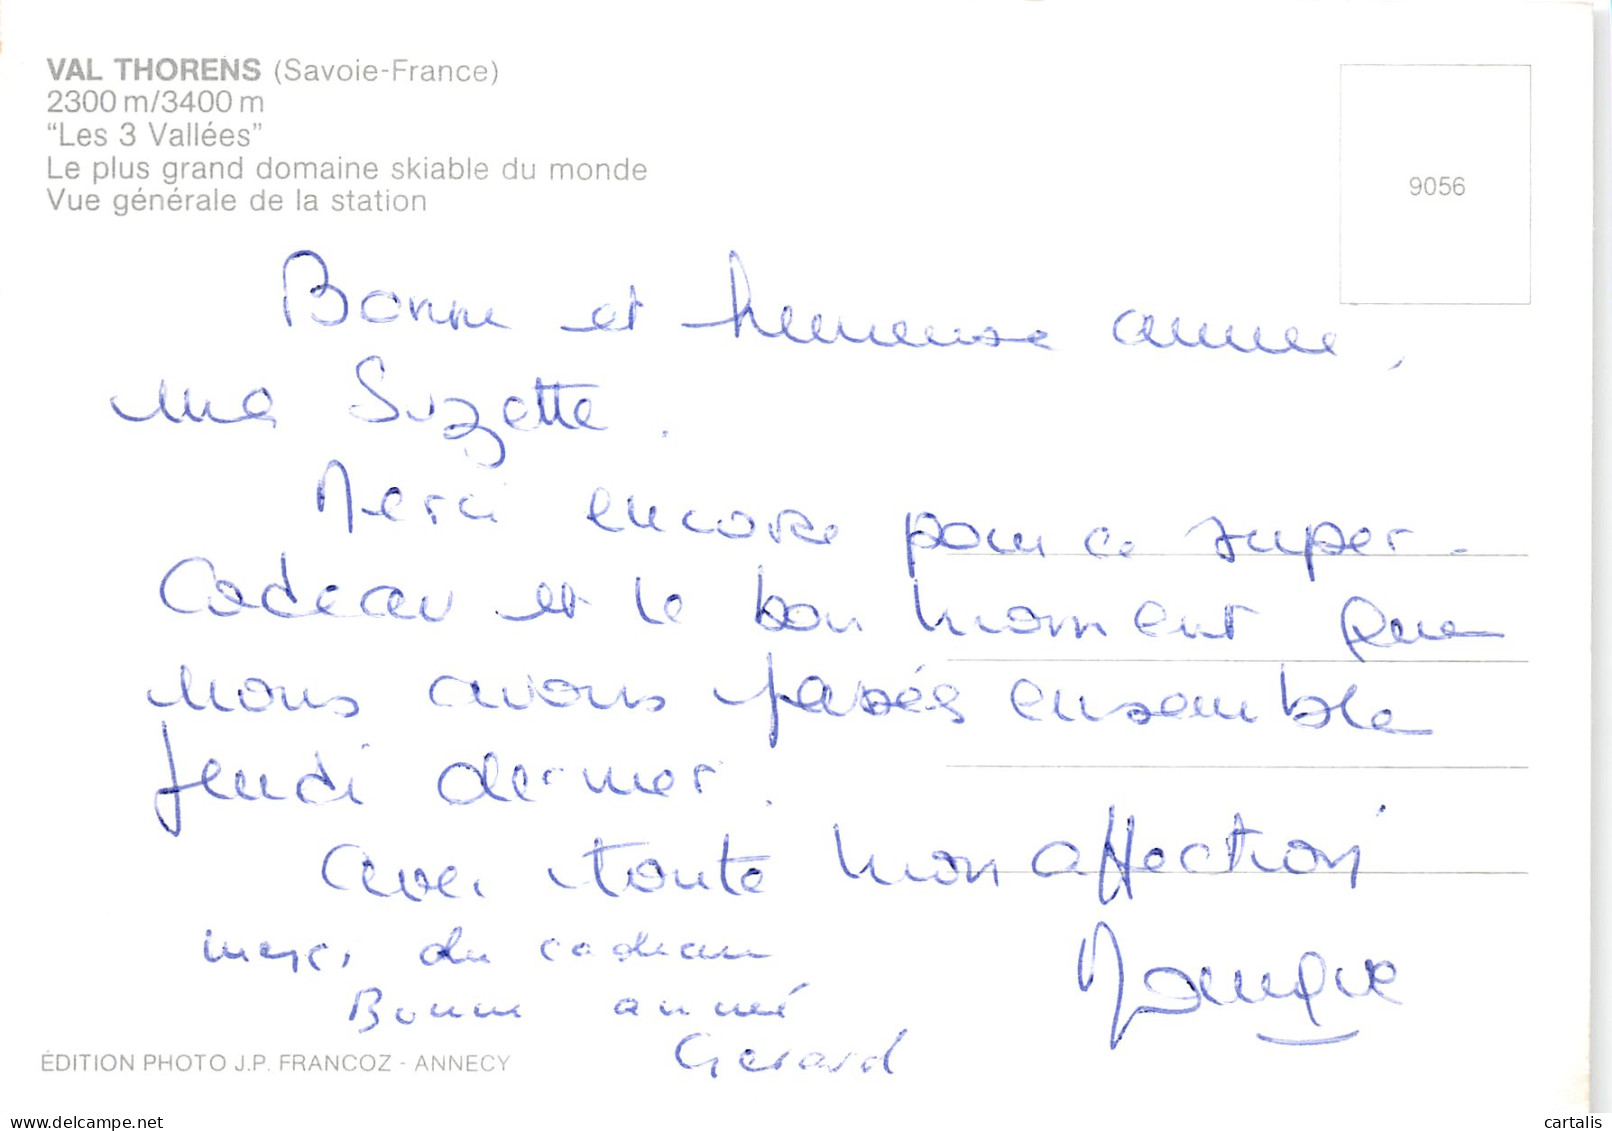 VAL THORENS (Savoie-France)
2300 m/3400 m
"Les 3 Vallées"
Le plus grand domaine skiable du monde
Vue générale de la station
9056
Bonne et heureuse année,
ma Suzette.
Merci encore pour ce super
cadeau et le bon moment que
nous avons passés ensemble
jeudi dernier.
Avec toute mon affection
merci du cadeau
Bonne année
Gerard
ÉDITION PHOTO J.P. FRANCOZ - ANNECY
www.delcampe.net
cartalis